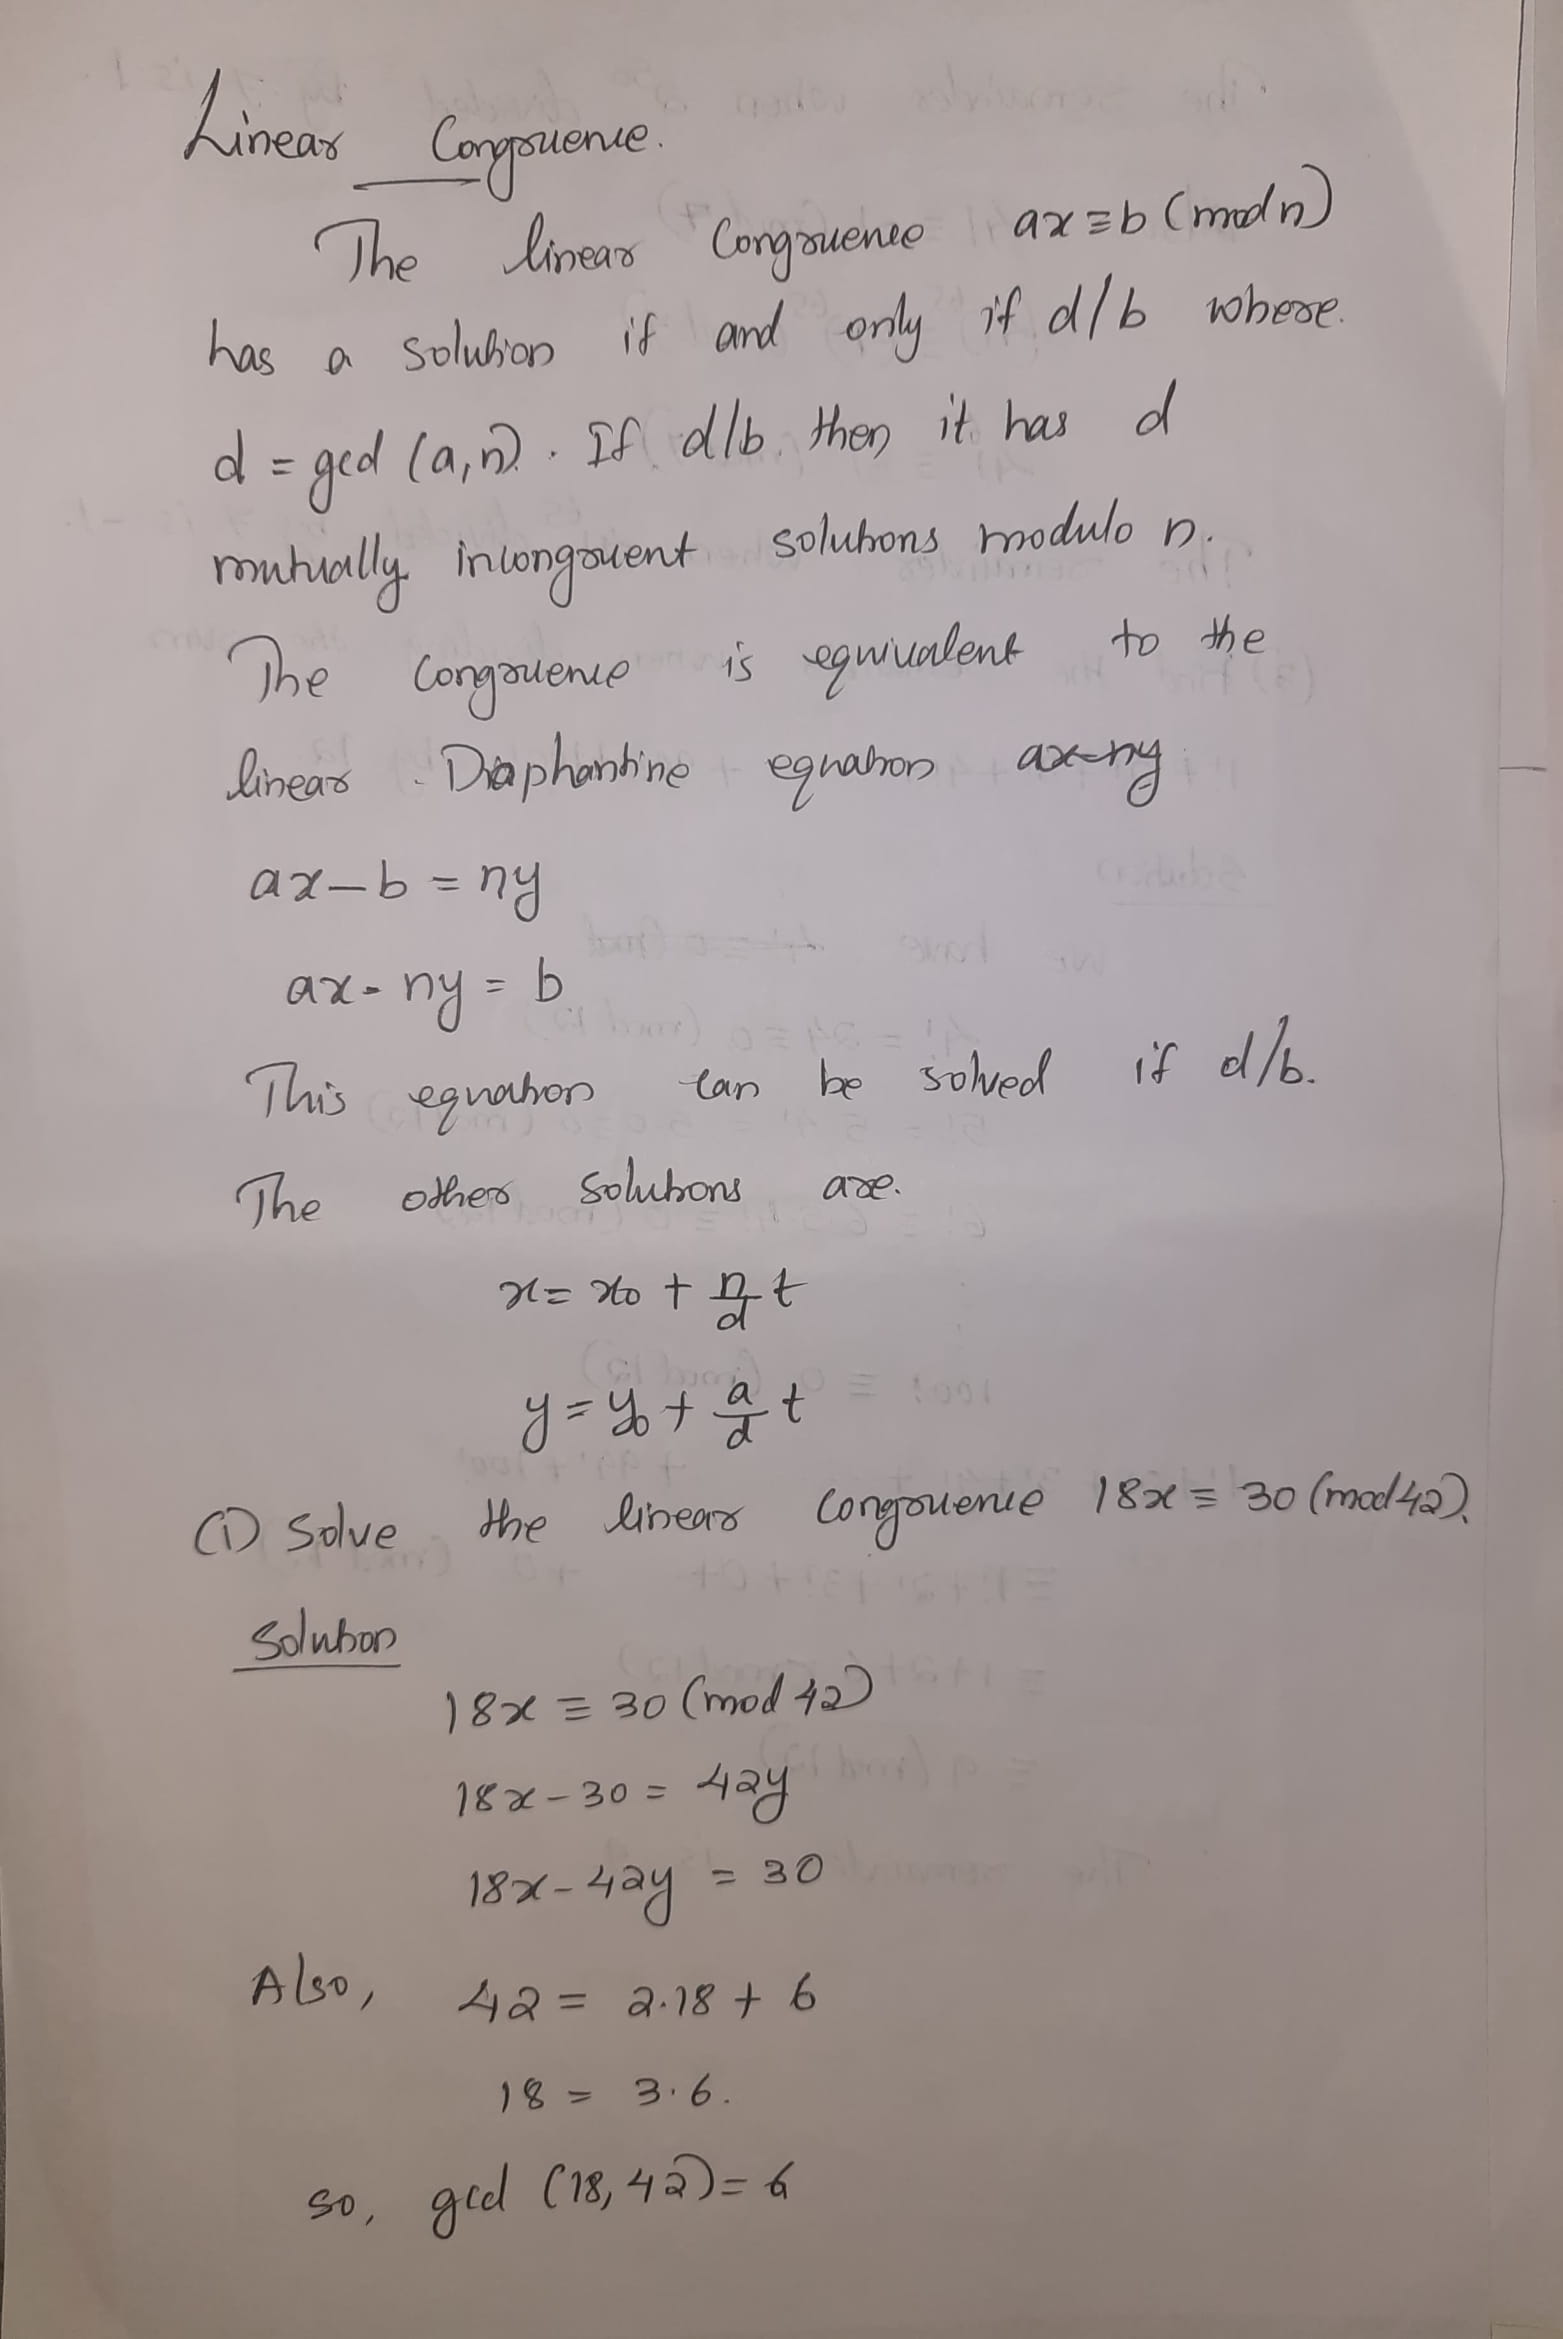 Linear Congruence.
The linear Congruence ax ≡ b (mod n)
has a solution if and only if d/b where.
d = gcd (a,n). If d/b then it has d
mutually incongruent solutions modulo n.
The congruence is equivalent to the
linear Diaphantine equation ax-ny
ax – b = ny
ax - ny = b
This equation can be solved if d/b.
The other solutions are.
x = x₀ + n/d t
y = y₀ + a/d t
(1) Solve the linear congruence 18x ≡ 30 (mod 42).
Solution
18x ≡ 30 (mod 42)
18x – 30 = 42y
18x – 42y = 30
Also, 42 = 2.18 + 6
18 = 3.6.
so, gcd (18, 42) = 6